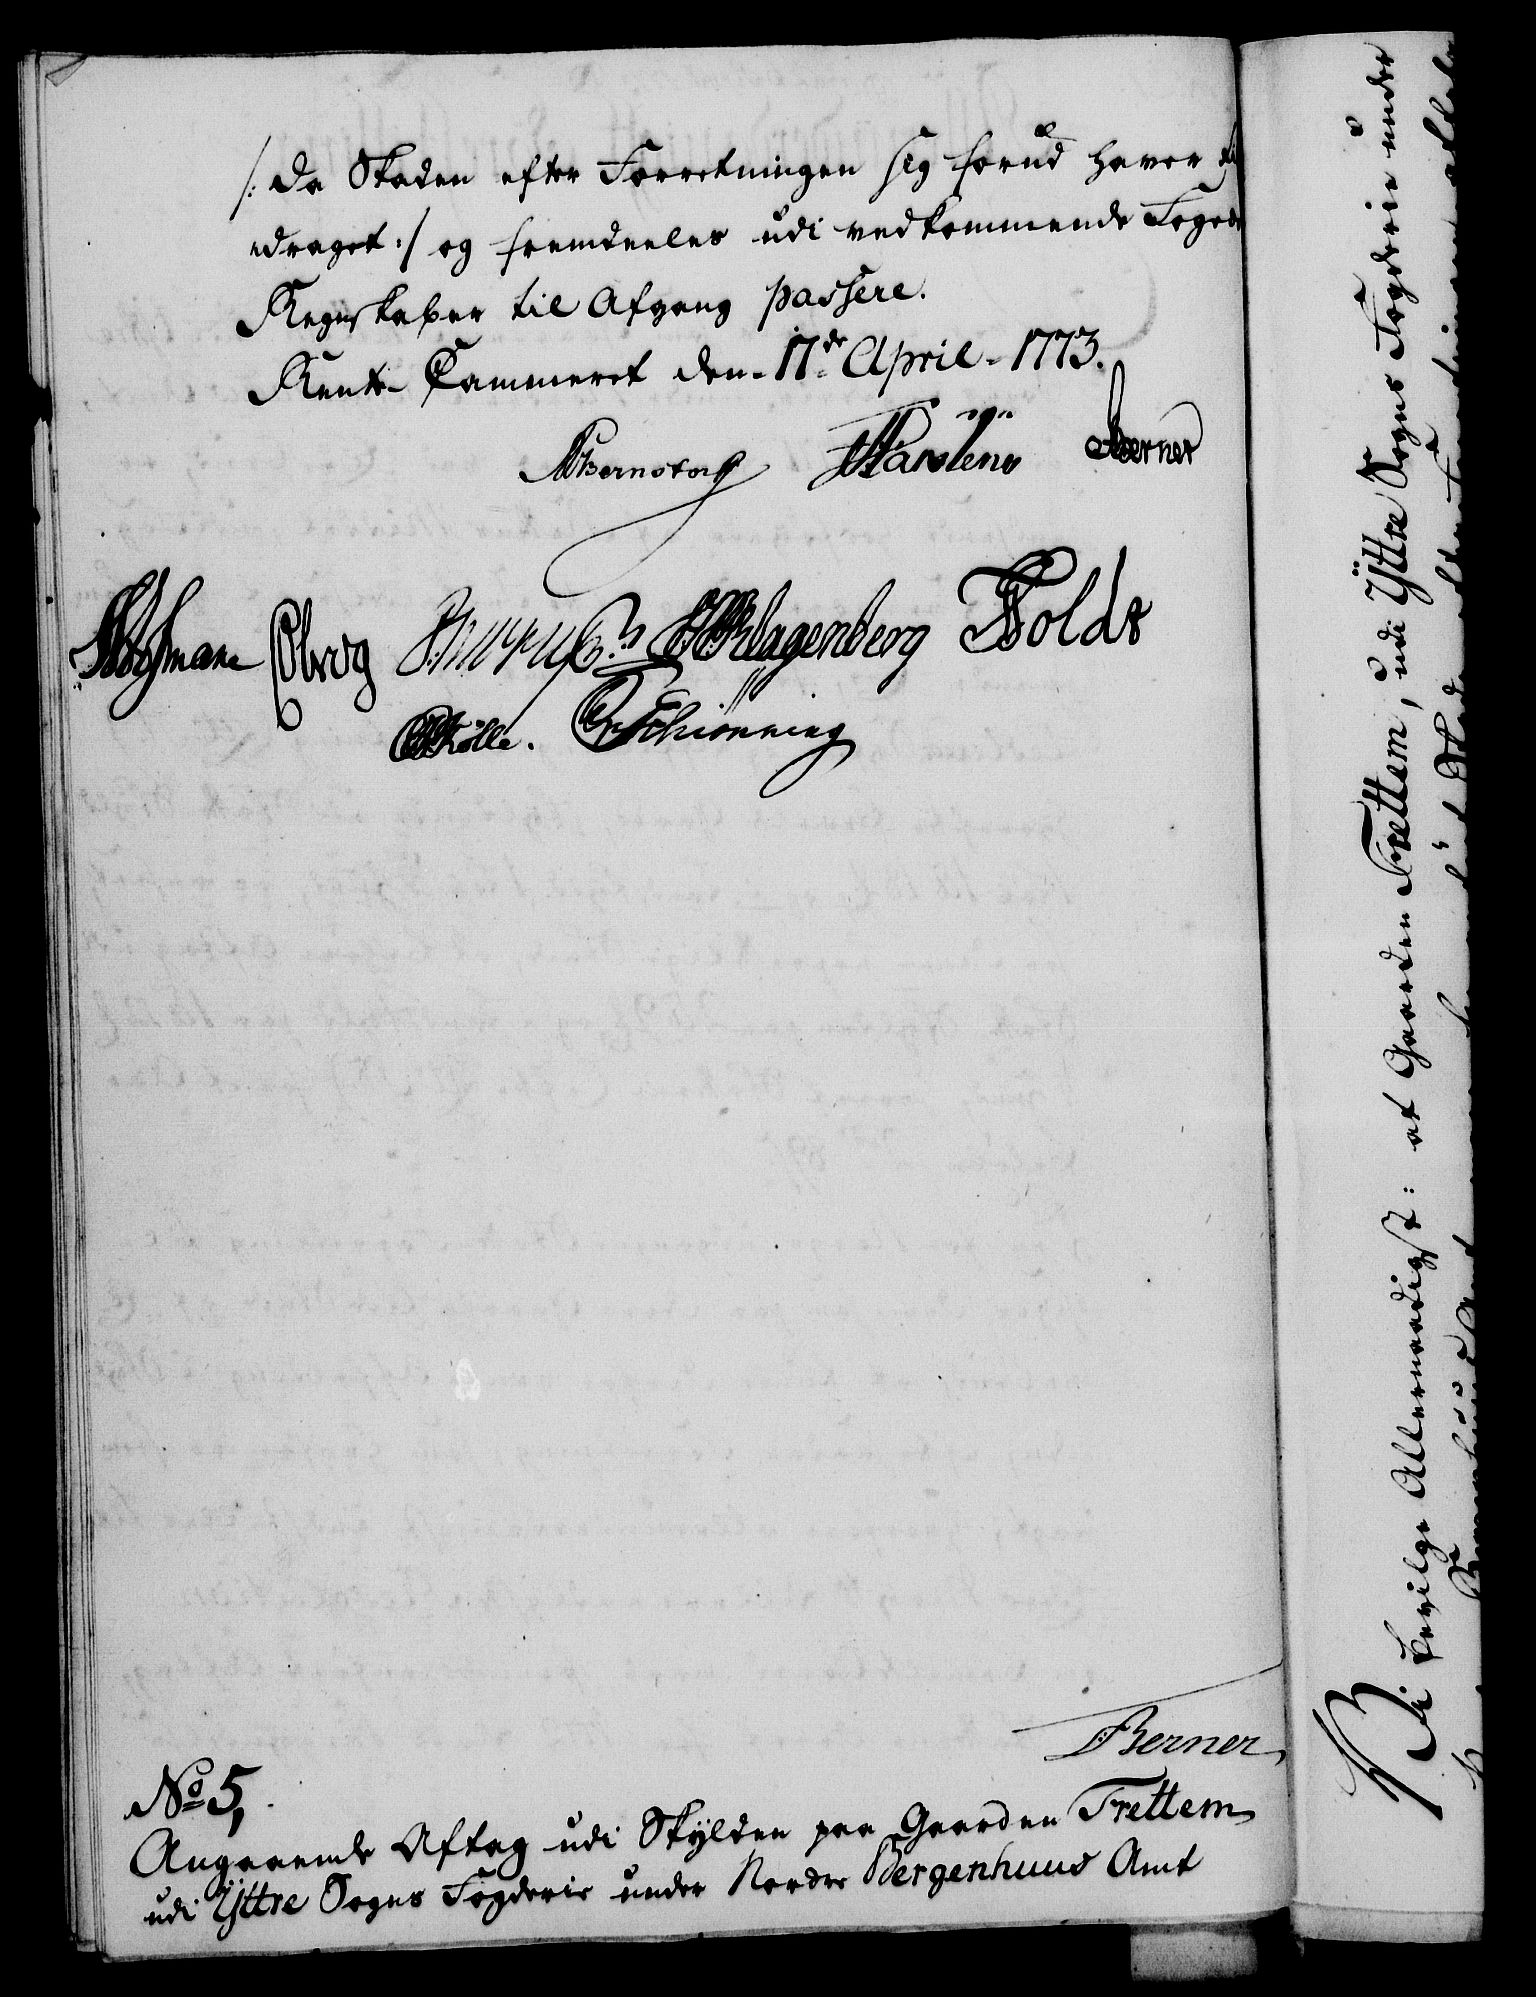 /: da Skaden efter Forretningen sig forud haver
draget :/ og fremdeeles udi vedkommende Foged
Regnskaber til Afgang passere.
Rente Cammeret den 17de April 1773.
ABernstorff Karstens Berner
Hofmane Klagenberg Holdt
Kølle. Schiønning
Berner
No 5,
Angaaende Aftag udi Skylden paa Gaarden Trettem
udi Yttre Sogns Fogderie under Nordre Bergenhuus Amt
Vi bevilge Allernaadigst: at Gaarden Trettem, udi Yttre Sogns Fogderie under